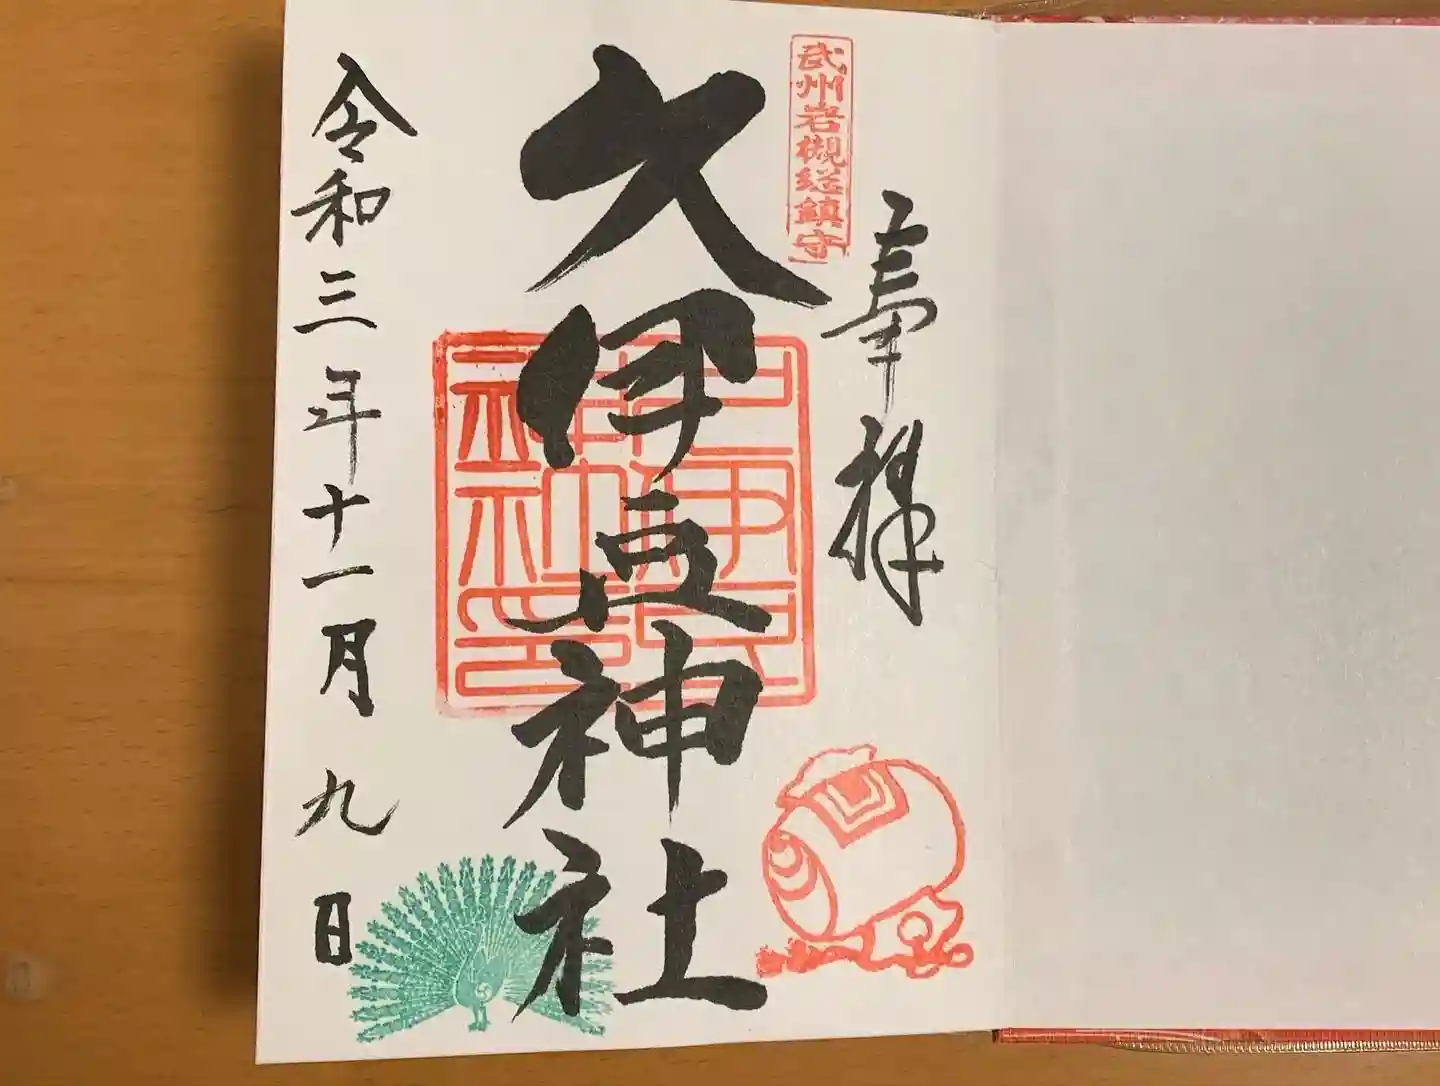 武州岩槻総鎮守
奉拝
久伊豆神社
久伊豆神社印
令和三年十一月九日